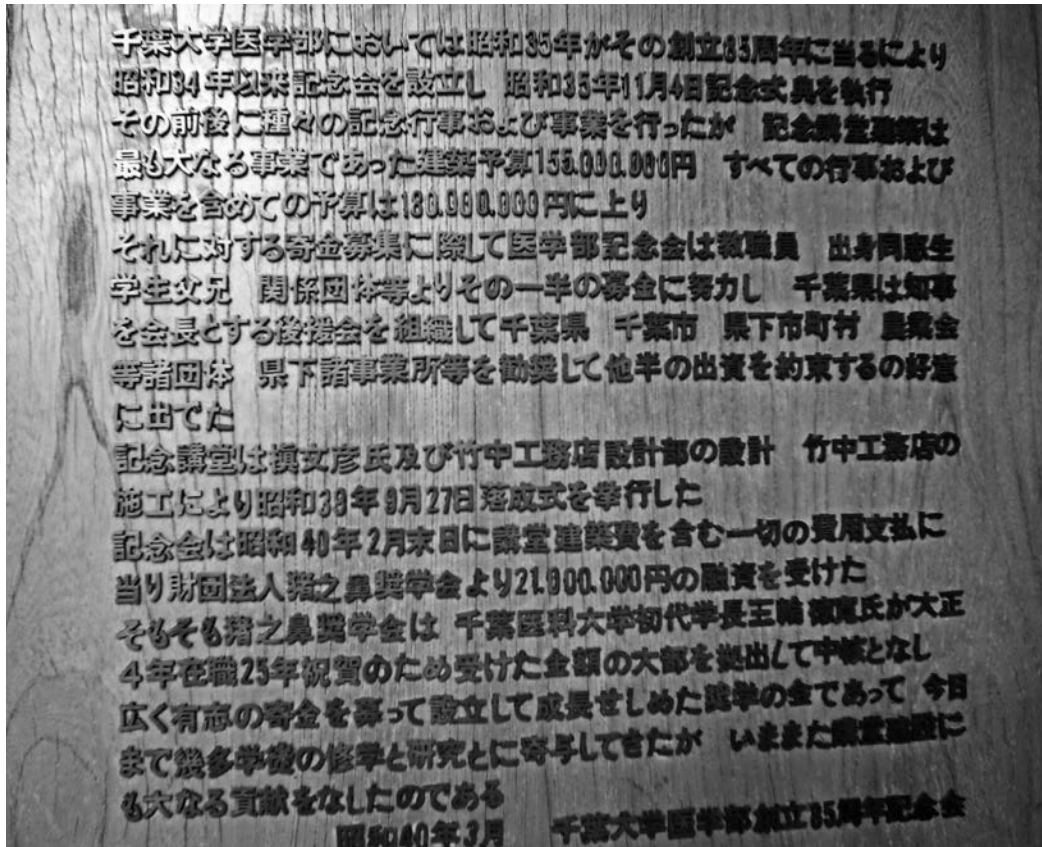 千葉大学医学部においては昭和35年がその創立85周年に当るにより
昭和34年以来記念会を設立し　昭和35年11月4日記念式典を執行
その前後に種々の記念行事および事業を行ったが　記念講堂建築は
最も大なる事業であった建築予算155.000.000円　すべての行事および
事業を含めての予算は180.000.000円に上り
それに対する寄金募集に際して医学部記念会は教職員　出身同窓生
学生父兄　関係団体等よりその一半の募金に努力し　千葉県は知事
を会長とする後援会を組織して千葉県　千葉市　県下市町村　農業会
等諸団体　県下諸事業所等を勧奨して他半の出資を約束するの好意
に出でた
記念講堂は槇文彦氏及び竹中工務店設計部の設計　竹中工務店の
施工により昭和39年9月27日落成式を挙行した
記念会は昭和40年2月末日に講堂建築費を含む一切の費用支払に
当り財団法人猪之鼻奨学会より21.000.000円の融資を受けた
そもそも猪之鼻奨学会は　千葉医科大学初代学長三輪徳寛氏が大正
4年在職25年祝賀のため受けた金額の大部を拠出して中核となし
広く有志の寄金を募って設立して成長せしめた奨学の会であって　今日
まで幾多学徒の修学と研究とに寄与してきたが　いままた講堂建設に
も大なる貢献をなしたのである
昭和40年3月　千葉大学医学部創立85周年記念会